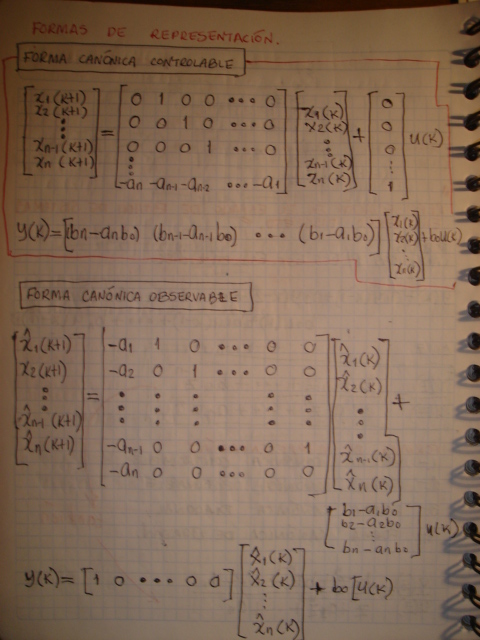 FORMAS DE REPRESENTACIÓN.
FORMA CANÓNICA CONTROLABLE
[x1(k+1) x2(k+1) ⋮ xn-1(k+1) xn(k+1)] = [0 1 0 0 ... 0
0 0 1 0 ... 0
0 0 0 1 ... 0
⋮
-an -an-1 -an-2 ... -a1] [x1(k) x2(k) ⋮ xn-1(k) xn(k)] + [0 0 0 ⋮ 1] u(k)
y(k)=[(bn-anb0) (bn-1-an-1b0) ... (b1-a1b0)] [x1(k) x2(k) ⋮ xn(k)] + b0u(k)
FORMA CANÓNICA OBSERVABLE
[x̂1(k+1) x2(k+1) ⋮ x̂n-1(k+1) x̂n(k+1)] = [-a1 1 0 ... 0 0
-a2 0 1 ... 0 0
⋮ ⋮ ⋮ ⋮ ⋮
-an-1 0 0 ... 0 1
-an 0 0 ... 0 0] [x̂1(k) x̂2(k) ⋮ x̂n-1(k) x̂n(k)] +
[b1-a1b0 b2-a2b0 ⋮ bn-anb0] u(k)
y(k)=[1 0 ... 0 0] [x̂1(k) x̂2(k) ⋮ x̂n(k)] + b0[u(k)